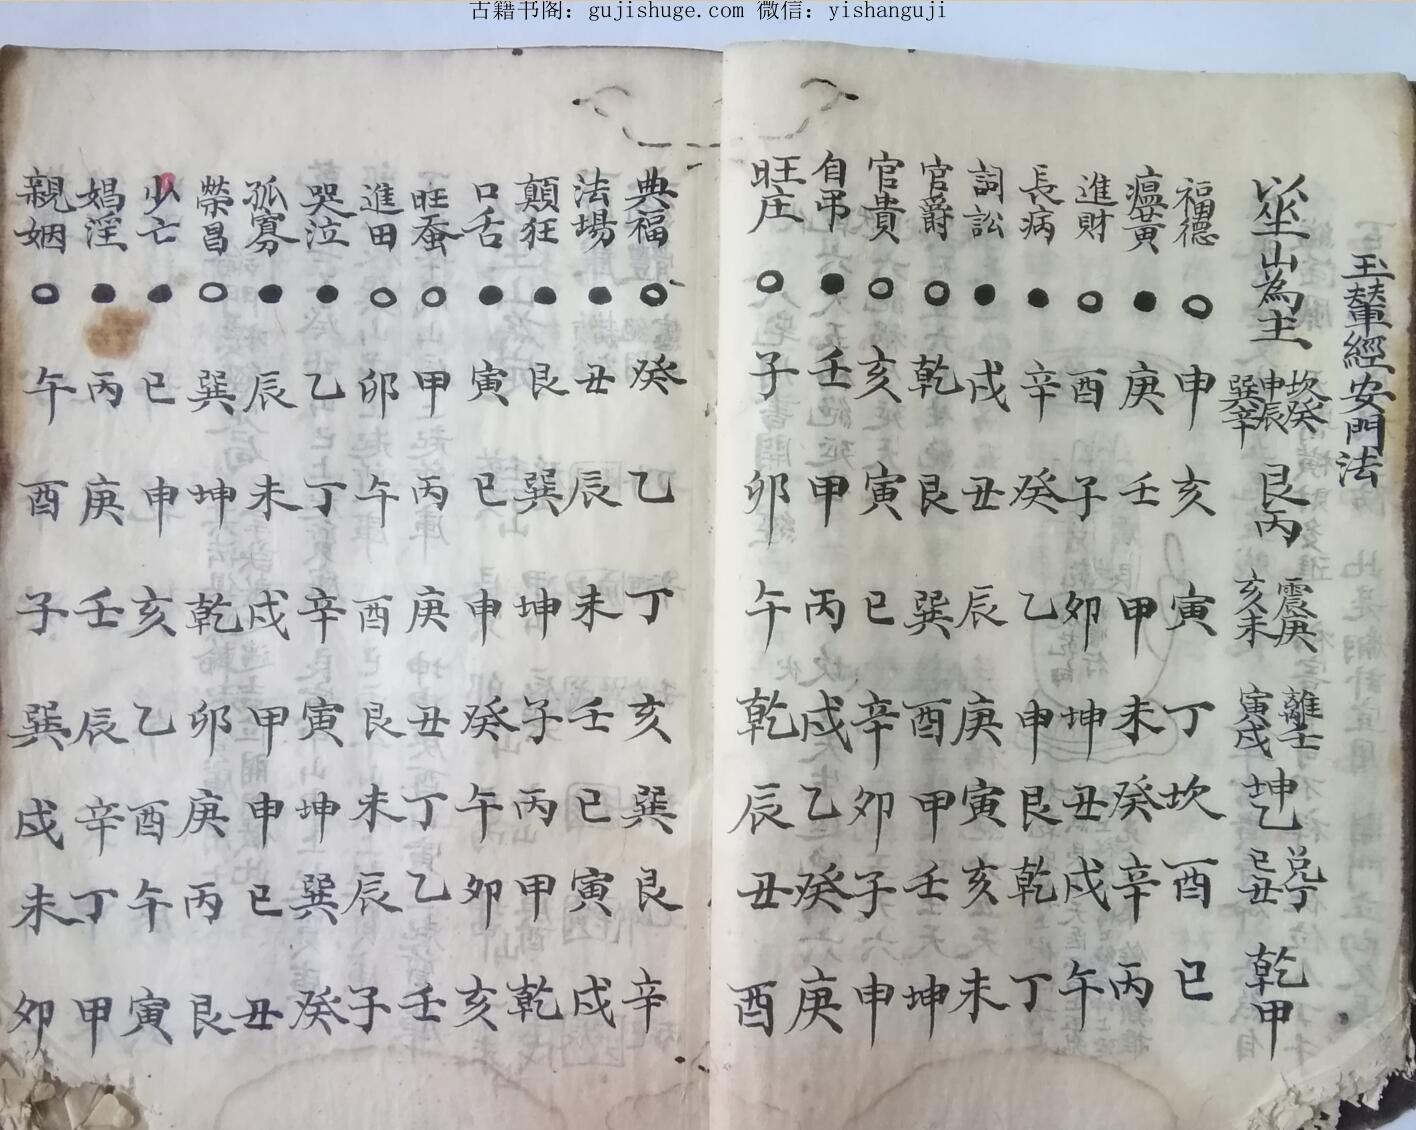 古籍书阁：gujishuge.com 微信：yishanguji
玉輦經安門法
以坐山為主 坎癸申辰巽辛 艮丙 震庚亥未 離壬寅戌 坤乙 兑丁巳丑 乾甲
福德 ○ 申 亥 寅 丁 坎 酉 巳
瘟黄 ● 庚 壬 甲 未 癸 辛 丙
進財 ○ 酉 子 卯 坤 丑 戌 午
長病 ● 辛 癸 乙 申 艮 乾 丁
詞訟 ● 戌 丑 辰 庚 寅 亥 未
官爵 ○ 乾 艮 巽 酉 甲 壬 坤
官貴 ○ 亥 寅 巳 辛 卯 子 申
自吊 ● 壬 甲 丙 戌 乙 癸 庚
旺庄 ○ 子 卯 午 乾 辰 丑 酉
典福 ○ 癸 乙 丁 亥 巽 艮 辛
法場 ● 丑 辰 未 壬 巳 寅 戌
顛狂 ● 艮 巽 坤 子 丙 甲 乾
口舌 ● 寅 巳 申 癸 午 卯 亥
旺蚕 ○ 甲 丙 庚 丑 丁 乙 壬
進田 ○ 卯 午 酉 艮 未 辰 子
哭泣 ● 乙 丁 辛 寅 坤 巽 癸
孤寡 ● 辰 未 戌 甲 申 巳 丑
榮昌 ○ 巽 坤 乾 卯 庚 丙 艮
少亡 ● 巳 申 亥 乙 酉 午 寅
娼淫 ● 丙 庚 壬 辰 辛 丁 甲
親姻 ○ 午 酉 子 巽 戌 未 卯